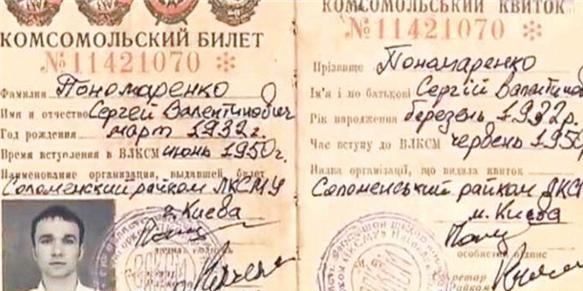 КОМСОМОЛЬСКИЙ БИЛЕТ
№ 11421070
Фамилия Пономаренко
Имя и отчество Сергей Валентинович
Год рождения март 1932 г.
Время вступления в ВЛКСМ июнь 1950 г.
Наименование организации, выдавшей билет
Соломенский райком ЛКСМУ
г. Киева
КОМСОМОЛЬСЬКИЙ КВИТОК
№ 11421070
Прізвище Пономаренко
Ім'я і по батькові Сергій Валентинович
Рік народження березень 1932р.
Час вступу до ВЛКСМ червень 1950
Назва організації, що видала квиток
Соломенський райком ЛКС
м. Києва